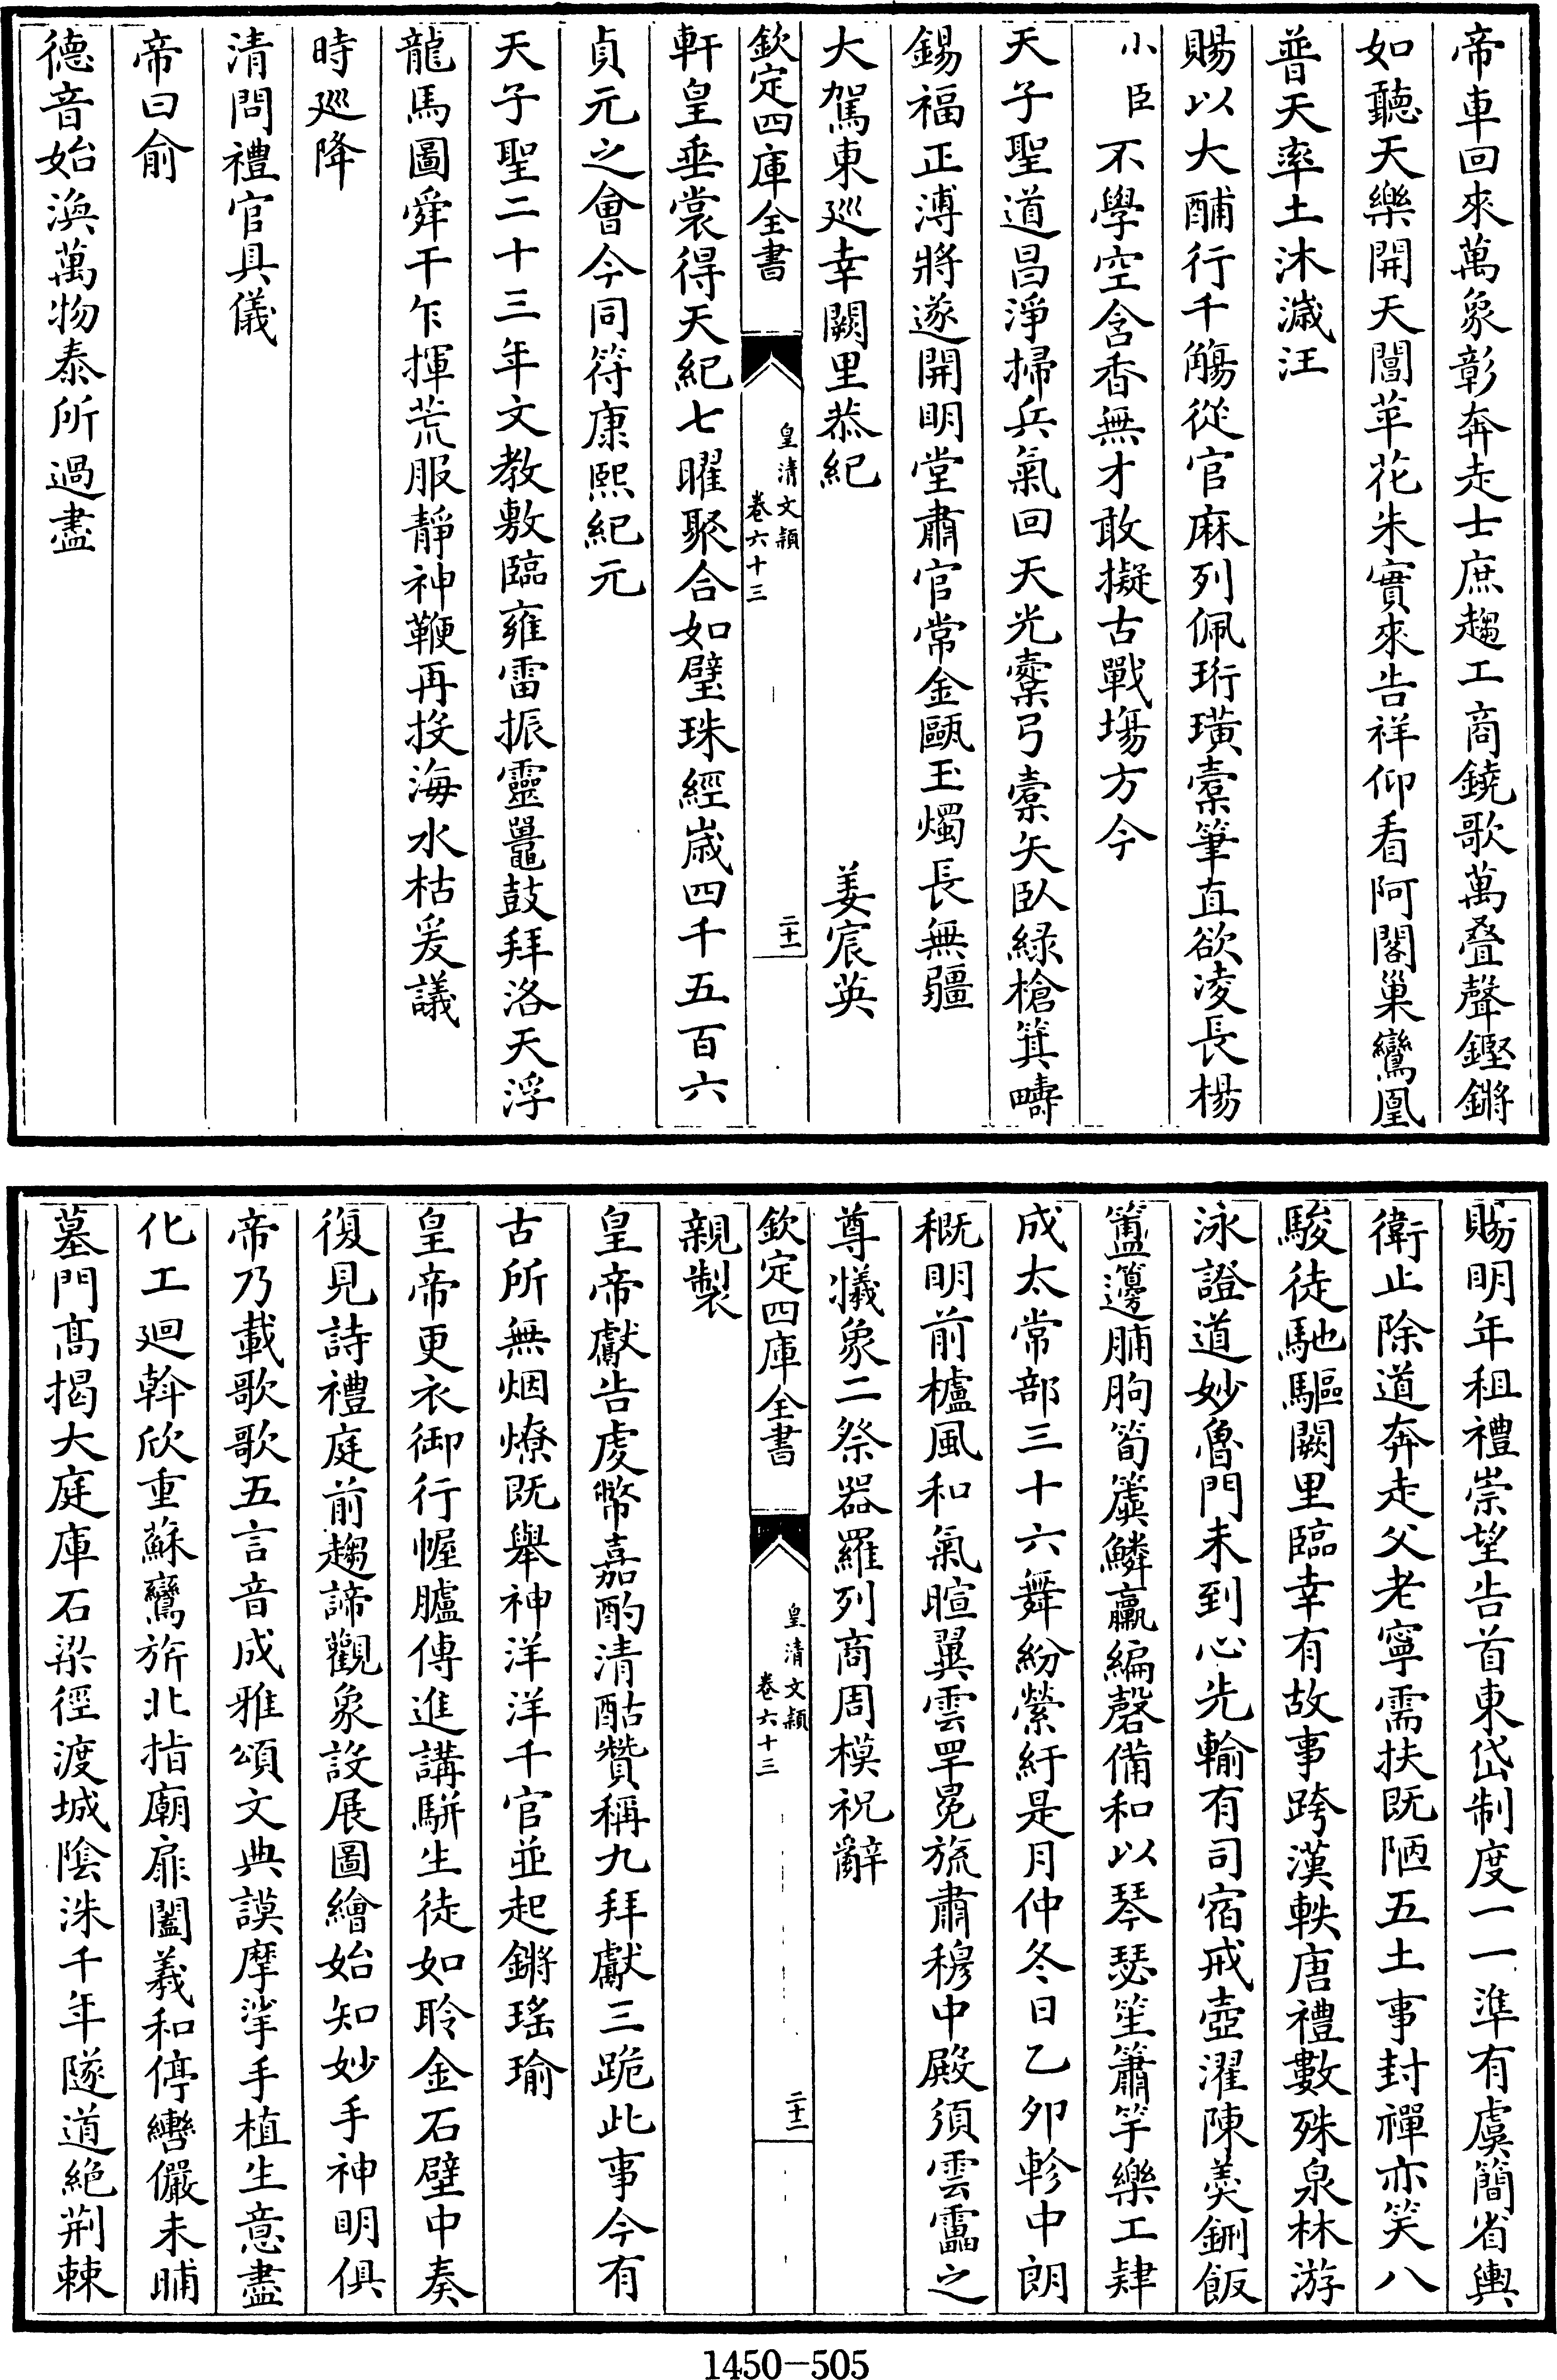 帝車回來萬象彰奔走士庶趨工商鐃歌萬疊聲鏗鏘
如聽天樂開天閶苹花朱實來告祥仰看阿閣巢鸞凰
普天率土沐濊汪
賜以大酺行千觴從官麻列佩珩璜橐筆直欲凌長楊
小臣不學空含香無才敢擬古戰場方今
天子聖道昌淨掃兵氣回天光櫜弓櫜矢臥綠槍箕疇
錫福正溥將遂開明堂肅官常金甌玉燭長無疆
大駕東巡幸闕里恭紀 姜宸英
欽定四庫全書 皇清文穎 卷六十三 二十一
軒皇垂裳得天紀七曜聚合如璧珠經歲四千五百六
貞元之會今同符康熙紀元
天子聖二十三年文教敷臨雍雷振靈鼉鼓拜洛天浮
龍馬圖舜干乍揮荒服靜神鞭再投海水枯爰議
時廵降
清問禮官具儀
帝曰俞
德音始渙萬物泰所過盡
賜明年租禮崇望告首東岱制度一一準有虞簡省輿
衛止除道奔走父老寧需扶既陋五土事封禪亦笑八
駿徒馳驅闕里臨幸有故事跨漢軼唐禮數殊泉林游
泳證道妙魯門未到心先輸有司宿戒壺濯陳羹鉶飯
簠籩脯朐筍簴鱗臝編磬備和以琴瑟笙簫竽樂工肄
成太常部三十六舞紛縈紆是月仲冬日乙夘軫中朗
概明前櫨風和氣暄翼雲罕冕旒肅穆中殿須雲靁之
尊犧象二祭器羅列商周模祝辭
親製
欽定四庫全書 皇清文穎 卷六十三 二十二
皇帝獻告虔幣嘉酌清酤贊稱九拜獻三跪此事今有
古所無烟燎既舉神洋洋千官並起鏘瑤瑜
皇帝更衣御行幄臚傳進講駢生徒如聆金石壁中奏
復見詩禮庭前趨諦觀象設展圖繪始知妙手神明俱
帝乃載歌歌五言音成雅頌文典謨摩挲手植生意盡
化工廻斡欣重蘇鸞旂北指廟扉闔羲和停轡儼未晡
墓門高揭大庭庫石梁徑渡城陰洙千年隧道絕荆棘
1450—505